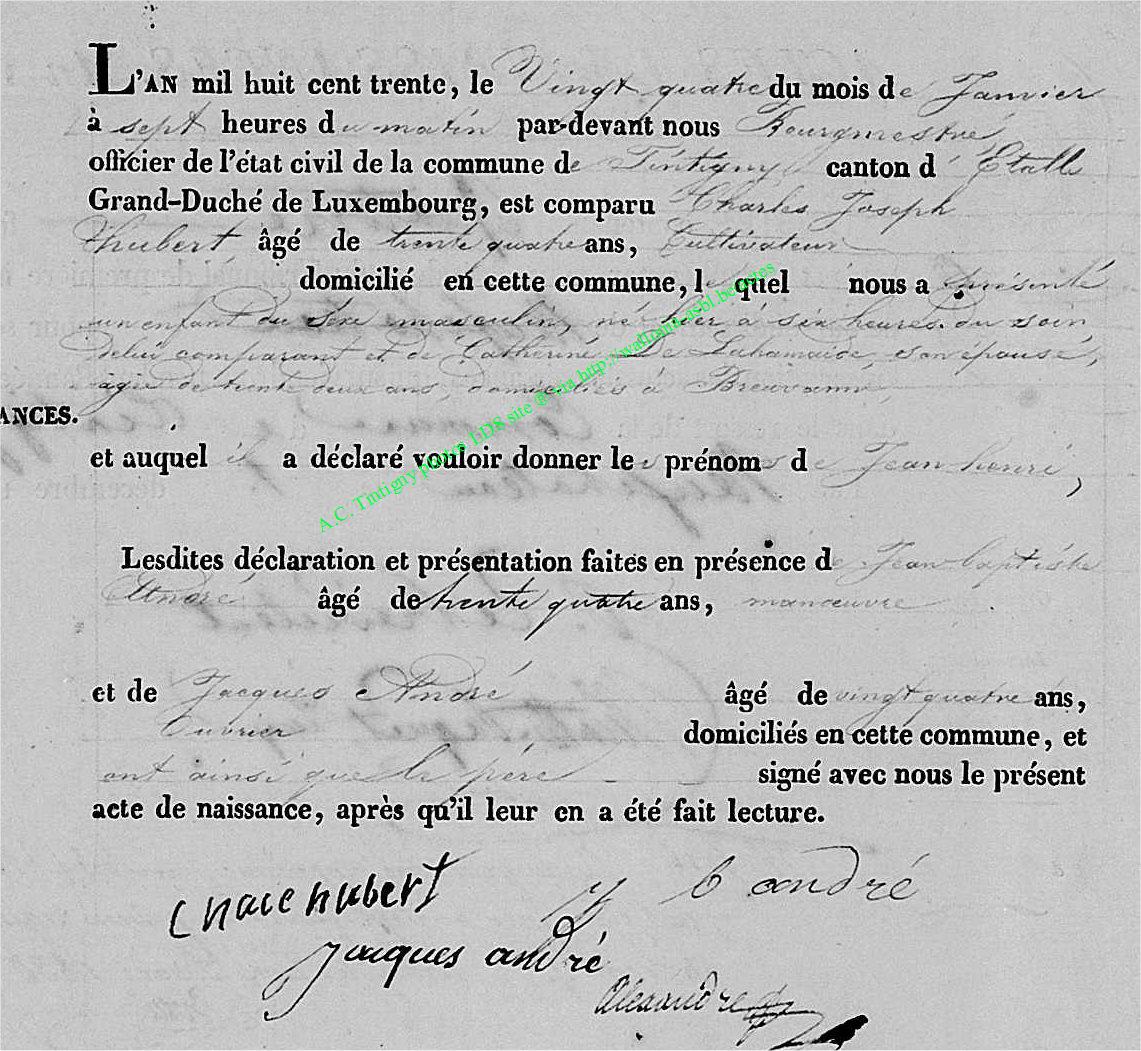 L'AN mil huit cent trente, le Vingt quatre du mois de Janvier
à sept heures du matin par-devant nous Bourgmestre,
officier de l'état civil de la commune de Tintigny canton d'Etalle
Grand-Duché de Luxembourg, est comparu Charles Joseph
hubert âgé de trente quatre ans, Cultivateur
domicilié en cette commune, lequel nous a présenté
un enfant du sexe masculin, né hier à six heures du soir
de lui comparant et de Catherine De Lahamaide, son épouse,
âgée de trente deux ans, domiciliés à Breuvanne,
ANCES.
et auquel il a déclaré vouloir donner les prénoms de Jean henri,
A.C. Tintigny photos LDS site via http://wallonia-asbl.be/actes
Lesdites déclaration et présentation faites en présence de Jean baptiste
André âgé de trente quatre ans, manœuvre
et de Jacques André âgé de vingt quatre ans,
Ouvrier domiciliés en cette commune, et
ont ainsi que le père signé avec nous le présent
acte de naissance, après qu'il leur en a été fait lecture.
hubert J b andré
jacques andré
Alexandre